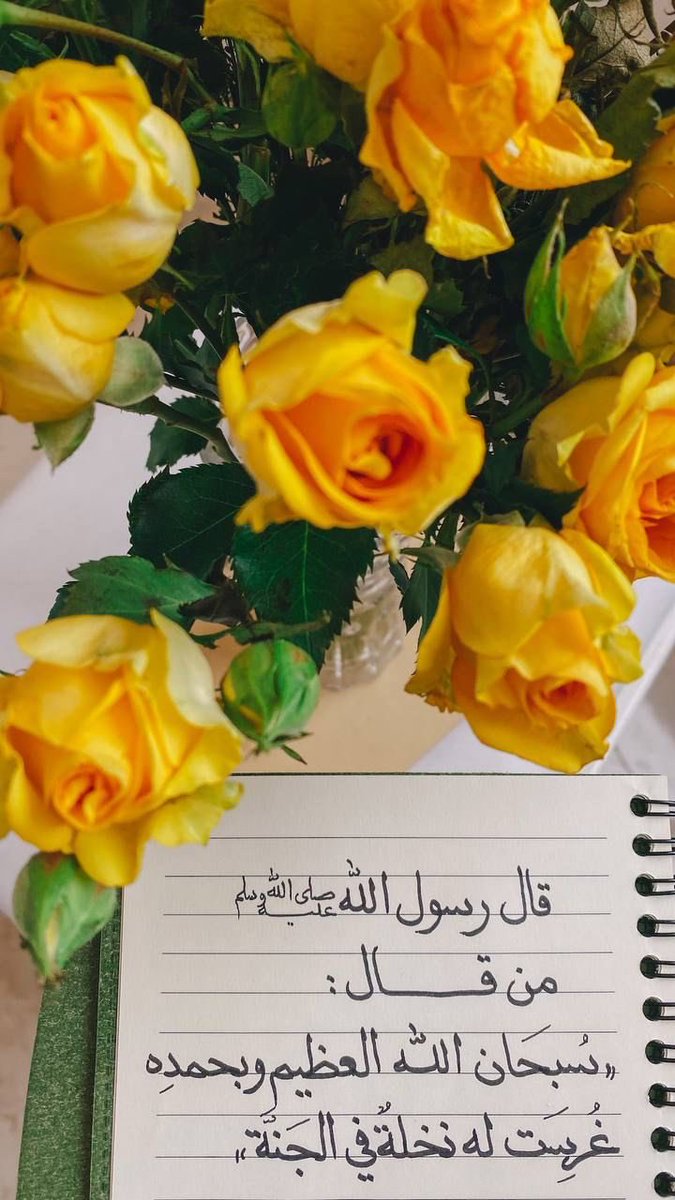 قال رسول الله صلى الله عليه وسلم
من قـــال :
«سُبحَان الله العظيم وبحمدِه
غُرِسَت له نخلةٌ في الجَنَّة»